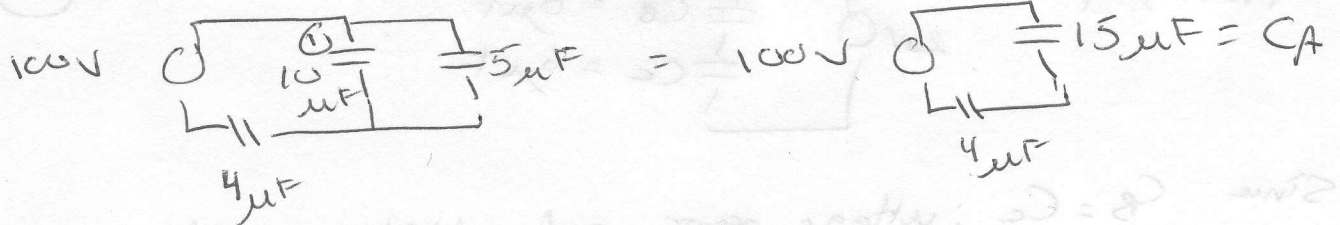 100V ① 10 μF 5μF = 100V 15μF = CA
4μF 4μF